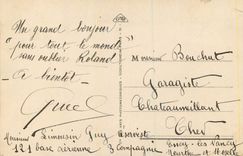 Un grand bonjour
"pour tout le monde"
sans oublier Roland
- à bientôt -
Guce
Monsieur Bouchat
Garagiste
Chateaumeillant
Cher
Monsieur Limousin Guy
121 base aérienne 3 Compagnie Essey-les Nancy
Meurthe et